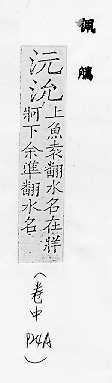 佩觿
沅沇
上魚袁翻水名在牂
牁下余準翻水名
(卷中